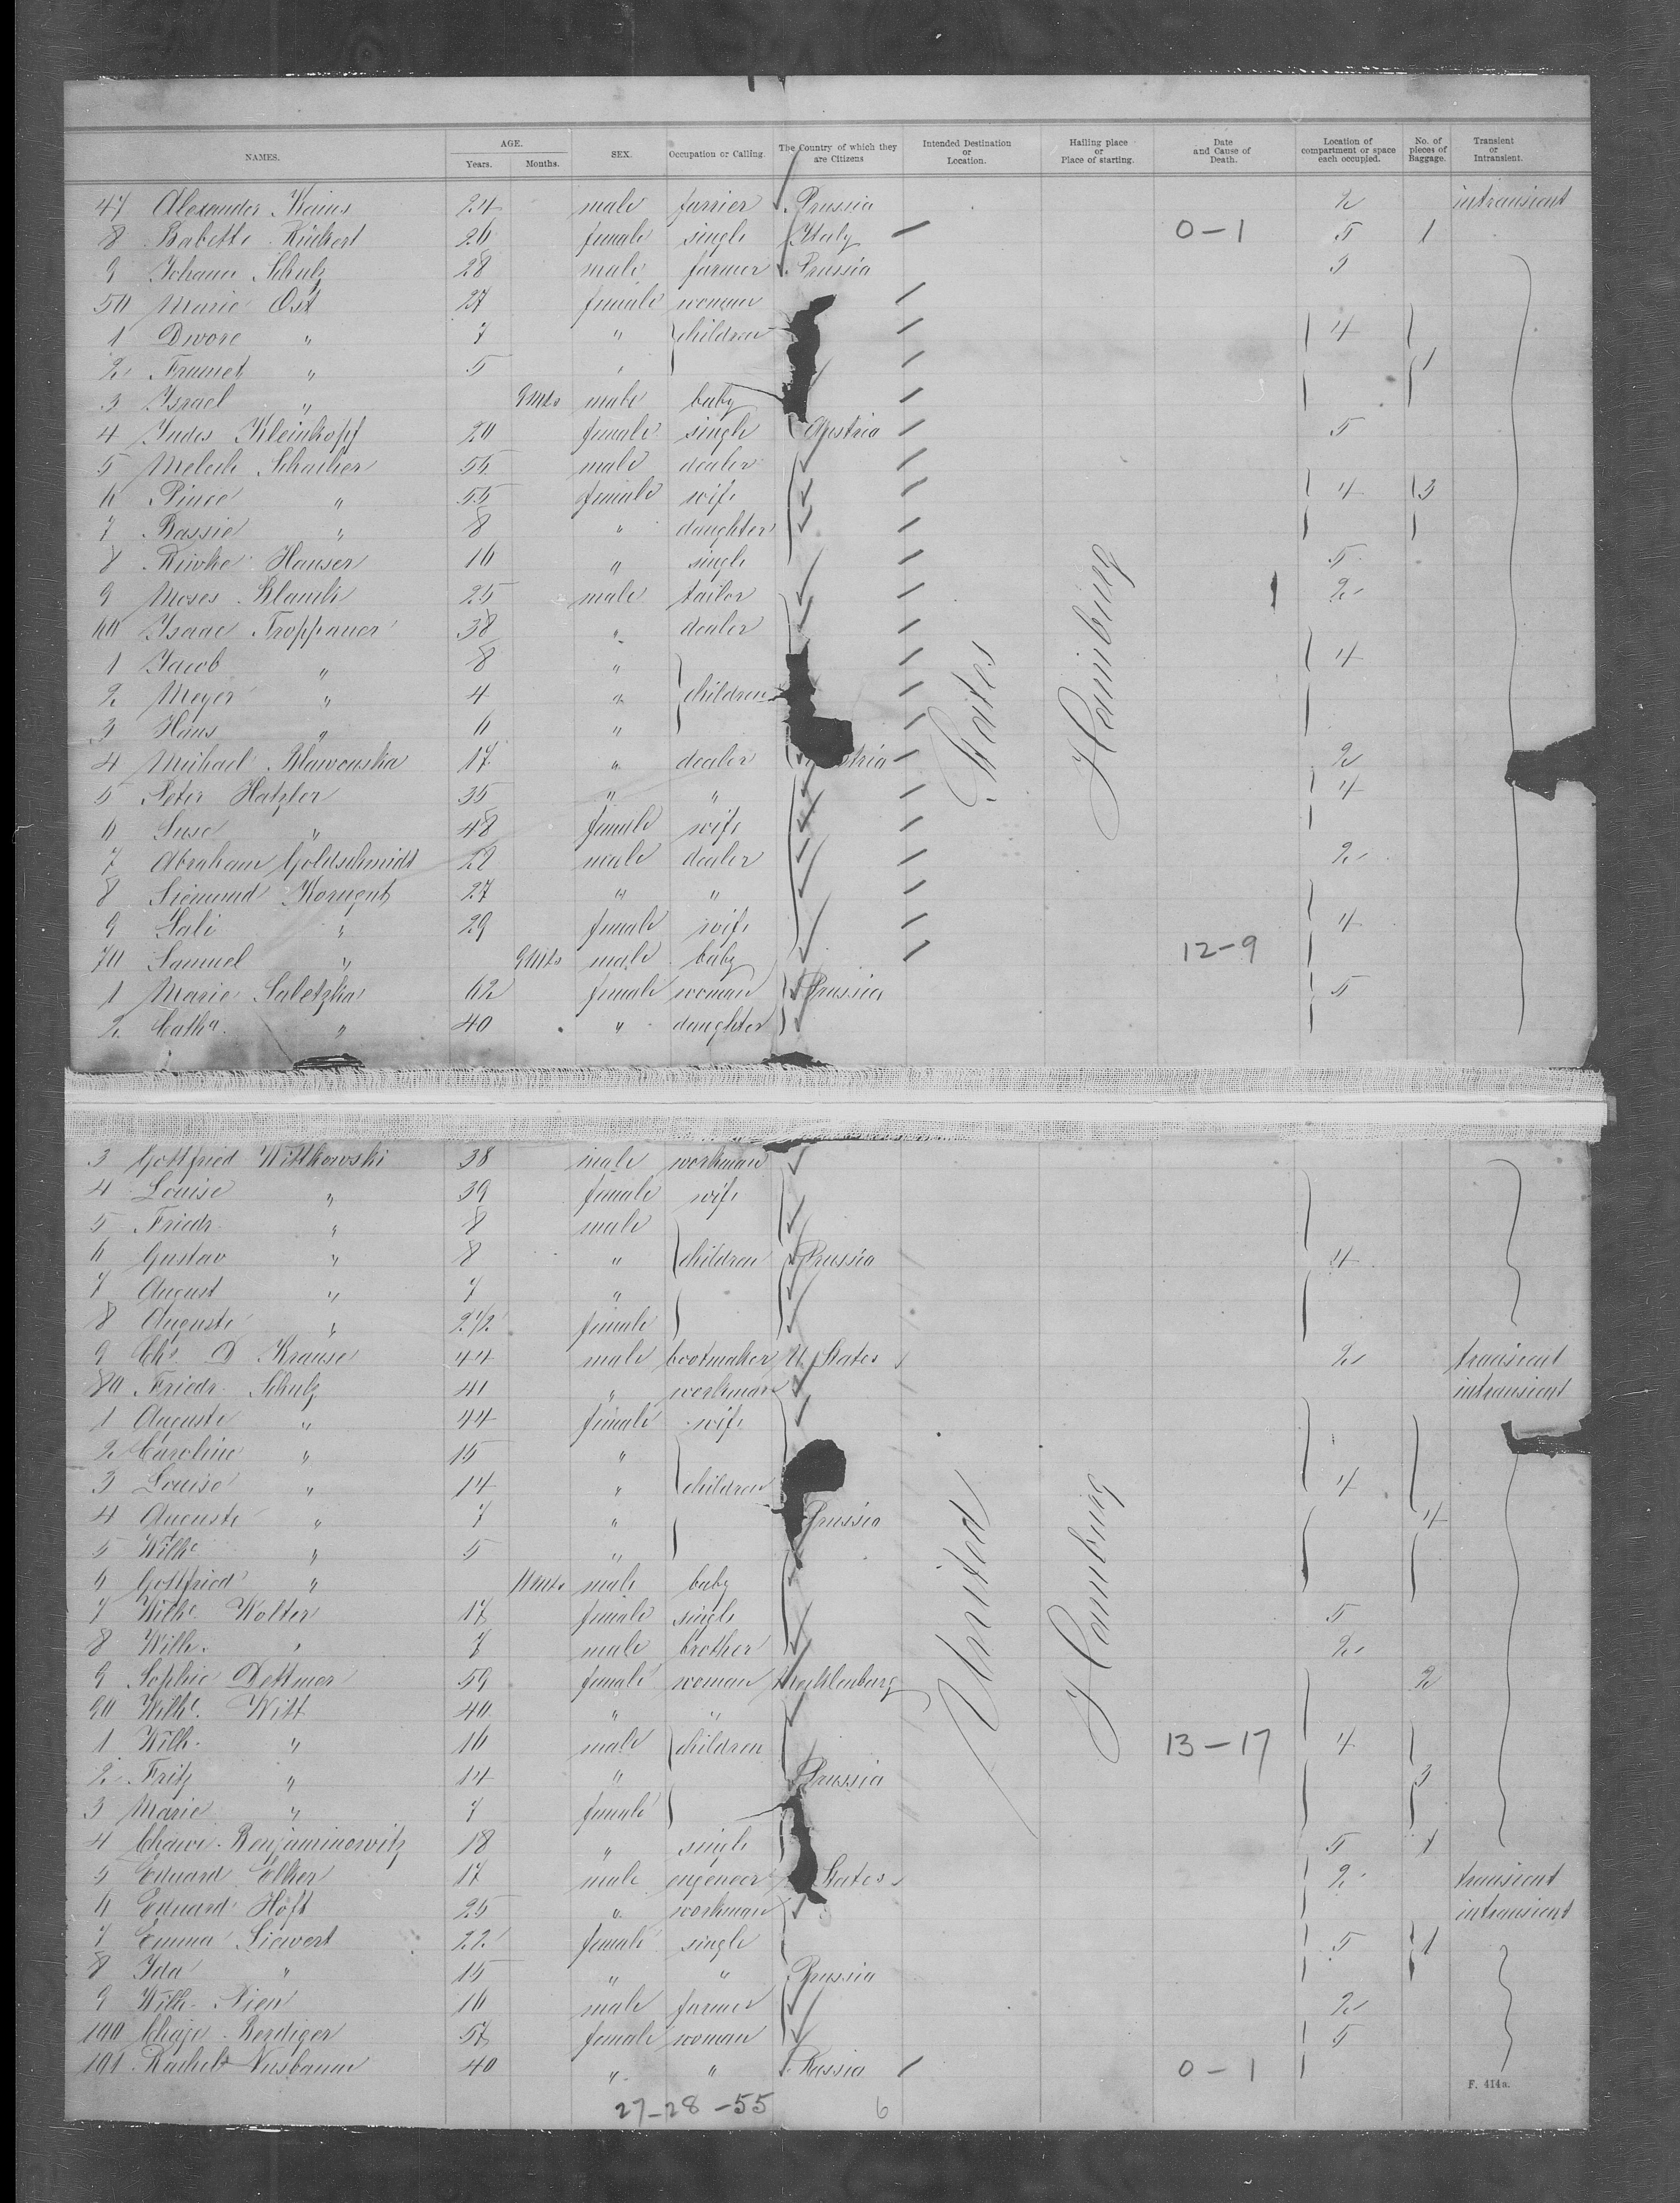 NAMES. AGE. Years. Months. SEX. Occupation or Calling. The Country of which they are Citizens Intended Destination or Location. Hailing place or Place of starting. Date and Cause of Death. Location of compartment or space each occupied. No. of pieces of Baggage. Transient or Intransient.
47 Alexander 24 male furrier Prussia 2 intransient
8 Babette Rückert 26 female single Italy 0-1 5 1
9 Johann Schulz 28 male farmer Prussia 5
50 Marie Ost 27 female woman
1 Dwore " 7 " children 4
2 Frumet " 5 " 1
3 Israel " 9 Mts male baby
4 Judes Kleinkopf 20 female single Austria 5
5 Melech Schacher 55 male dealer
6 Pince " 55 female wife 4 3
7 Bassie " 8 " daughter
8 Riwke Hauser 16 " single 5
9 Moses 25 male tailor 2
60 Isaac Troppauer 38 " dealer
1 Jacob " 8 " 4
2 Meyer " 4 " children
3 Hans " 6 "
4 Michael 17 " dealer 2
5 Peter Hatzler 35 " " 4
6 Suse " 48 female wife
7 Abraham Goldschmidt 22 male dealer 2
8 Sigmund Korngut 27 " "
9 Sali " 29 female wife 4
70 Samuel " 9 Mts male baby 12-9
1 Marie Saletzka 62 female woman Prussia 5
2 Catha " 40 " daughter
3 Gottfried Wittkowski 38 male workman
4 Louise " 39 female wife
5 Friedr. " 8 male
6 Gustav " 8 " children Prussia 4
7 August " 7 "
8 Auguste " 2 1/2 female
9 Chs. D Krause 44 male bootmaker U. States 2 transient
80 Friedr. Schulz 41 " workman intransient
1 Auguste " 44 female wife
2 Caroline " 15 "
3 Louise " 14 " children 4
4 Auguste " 7 " Prussia 4
5 Wilhe " 5 "
6 Gottfried " 11 Mts male baby
7 Wilhe. Wolter 17 female single 5
8 Wilh. " 7 male brother 2
9 Sophie Dettmer 59 female woman Mecklenburg 2
90 Wilhe. Witt 40 " "
1 Wilh. " 16 male children 13-17 4
2 Fritz " 14 " Prussia 3
3 Marie " 7 female
4 Benjaminowitz 18 " single 5 1
5 Eduard Elker 17 male engeneer States 2 transient
6 Eduard Höft 25 " workman intransient
7 Emma Siewert 22 female single 5 1
8 Ida " 15 " " Prussia
9 Wilh. 16 male farmer 2
100 Chaje Berdiger 57 female woman 5
101 Rachel Nusbaum 40 " " Russia 0-1
United States
Hamburg
Hamburg
27-28-55 6
F. 414a.